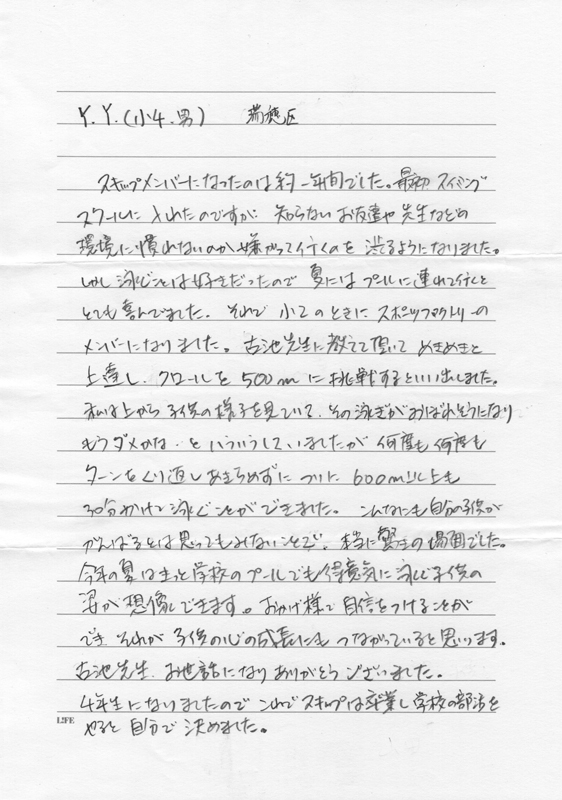 Y.Y.(小4.男) 瑞穂区
スキップメンバーになったのは約一年間でした。最初スイミング
スクールに入れたのですが知らないお友達や先生などの
環境に慣れないのか嫌がって行くのを渋るようになりました。
しかし泳ぐことは好きだったので夏にはプールに連れて行くと
とても喜んでました。それで小2のときにスポーツファクトリーの
メンバーになりました。古池先生に教えて頂いてめきめきと
上達し、クロールを500mに挑戦するといい出しました。
私は上から子供の様子を見ていて、その泳ぎがおぼれそうになり
もうダメかな、といらいらしていましたが何度も何度も
ターンをくり返しあきらめずについに600m以上も
30分かけて泳ぐことができました。こんなにも自分の子供が
がんばるとは思ってもみないことで、本当に驚きの場面でした。
今年の夏はきっと学校のプールでも得意気に泳ぐ子供の
姿が想像できます。おかげ様で自信をつけることが
できそれが子供の心の成長にもつながっていると思います。
古池先生、お世話になりありがとうございました。
4年生になりましたのでこれでスキップは卒業し学校の部活を
やると自分で決めました。
LIFE